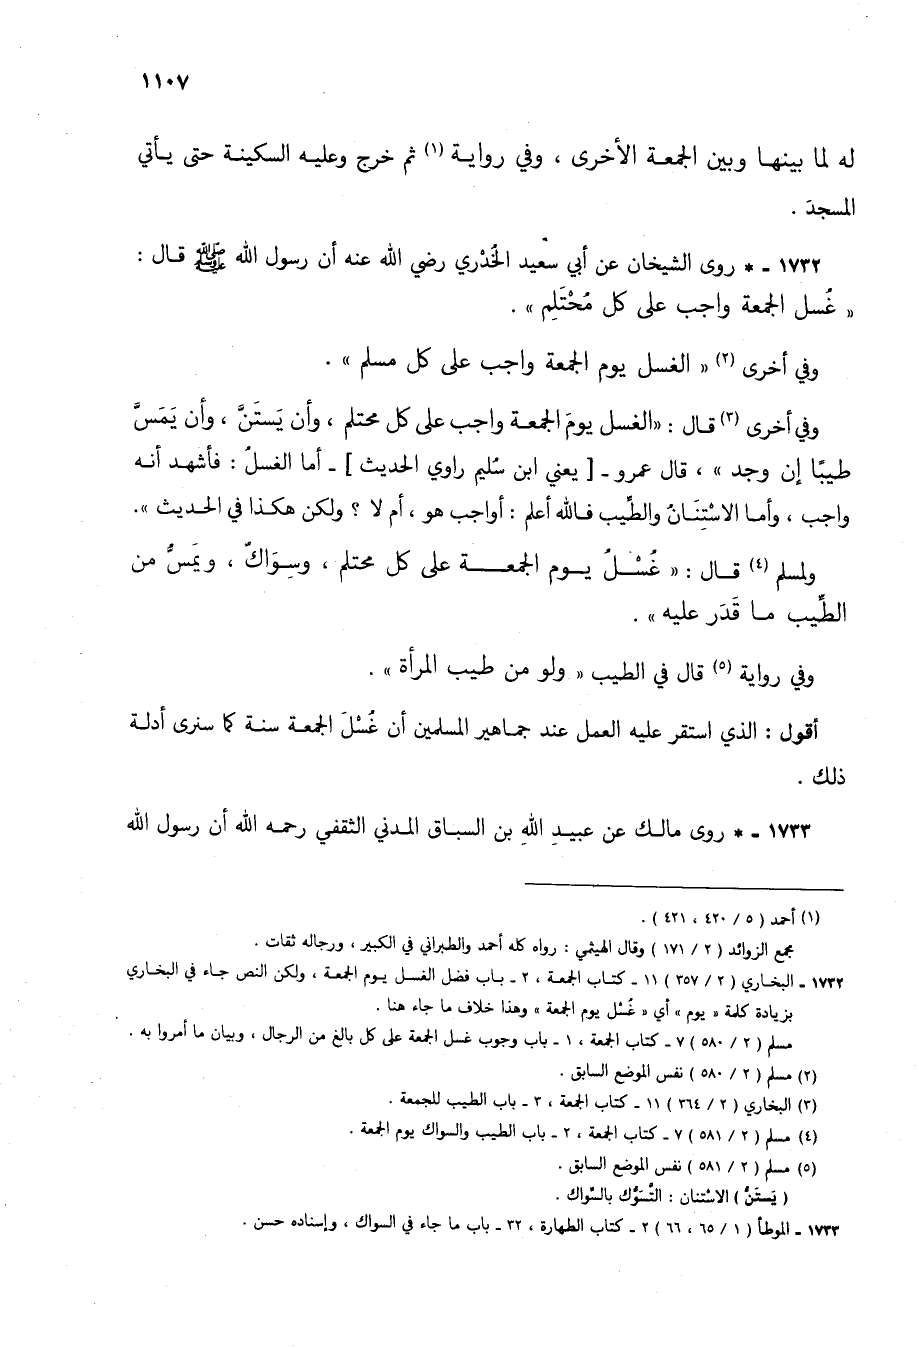 ١١٠٧
له لما بينها وبين الجمعة الأخرى ، وفي رواية (١) ثم خرج وعليه السكينة حتى يأتي
المسجدَ .
١٧٣٢ ـ * روى الشيخان عن أبي سعيد الخُدْري رضي الله عنه أن رسول الله ﷺ قال :
« غُسل الجمعة واجب على كل مُحْتَلِم » .
وفي أخرى (٢) « الغسل يوم الجمعة واجب على كل مسلم » .
وفي أخرى (٣) قال : «الغسل يومَ الجمعة واجب على كل محتلم ، وأن يَستَنَّ ، وأن يَمَسَّ
طيبًا إن وجد » ، قال عمرو ـ [ يعني ابن سُليم راوي الحديث ] ـ أما الغسلُ : فأشهد أنه
واجب ، وأما الاسْتِنَانُ والطِّيب فالله أعلم : أواجب هو ، أم لا ؟ ولكن هكذا في الحديث ».
ولمسلم (٤) قال : « غُسْلُ يوم الجمعة على كل محتلم ، وسِوَاكٌ ، ويَمَسُّ من
الطِّيب ما قَدَر عليه » .
وفي رواية (٥) قال في الطيب « ولو من طيب المرأة » .
أقول : الذي استقر عليه العمل عند جماهير المسلمين أن غُسْلَ الجمعة سنة كما سنرى أدلة
ذلك .
١٧٣٣ ـ * روى مالك عن عبيدِ اللهِ بن السباق المدني الثقفي رحمه الله أن رسول الله
(١) أحمد ( ٥ / ٤٢٠ ، ٤٢١ ) .
مجمع الزوائد ( ٢ / ١٧١ ) وقال الهيثمي : رواه كله أحمد والطبراني في الكبير ، ورجاله ثقات .
١٧٣٢ ـ البخاري ( ٢ / ٣٥٧ ) ١١ ـ كتاب الجمعة ، ٢ ـ باب فضل الغسل يوم الجمعة ، ولكن النص جاء في البخاري
بزيادة كلمة « يوم » أي « غُسْل يوم الجمعة » وهذا خلاف ما جاء هنا .
مسلم ( ٢ / ٥٨٠ ) ٧ ـ كتاب الجمعة ، ١ ـ باب وجوب غسل الجمعة على كل بالغ من الرجال ، وبيان ما أمروا به .
(٢) مسلم ( ٢ / ٥٨٠ ) نفس الموضع السابق .
(٣) البخاري ( ٢ / ٣٦٤ ) ١١ ـ كتاب الجمعة ، ٣ ـ باب الطيب للجمعة .
(٤) مسلم ( ٢ / ٥٨١ ) ٧ ـ كتاب الجمعة ، ٢ ـ باب الطيب والسواك يوم الجمعة .
(٥) مسلم ( ٢ / ٥٨١ ) نفس الموضع السابق .
( يَستَنُّ ) الاسْتنان : التَّسَوُّك بالسِّواك .
١٧٣٣ ـ الموطأ ( ١ / ٦٥ ، ٦٦ ) ٢ ـ كتاب الطهارة ، ٣٢ ـ باب ما جاء في السواك ، وإسناده حسن .